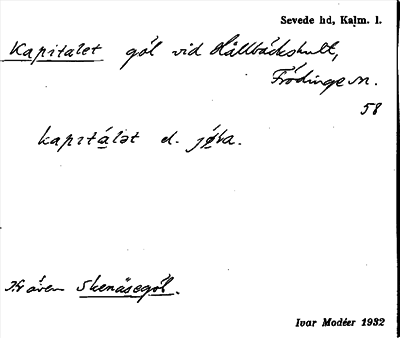 Sevede hd, Kalm. l.
Kapitalet göl vid Hällbäckshult,
Frödinge sn.
58
kapɪtálət el. jǿva.
Även Skenäsegöl.
Ivar Modéer 1932